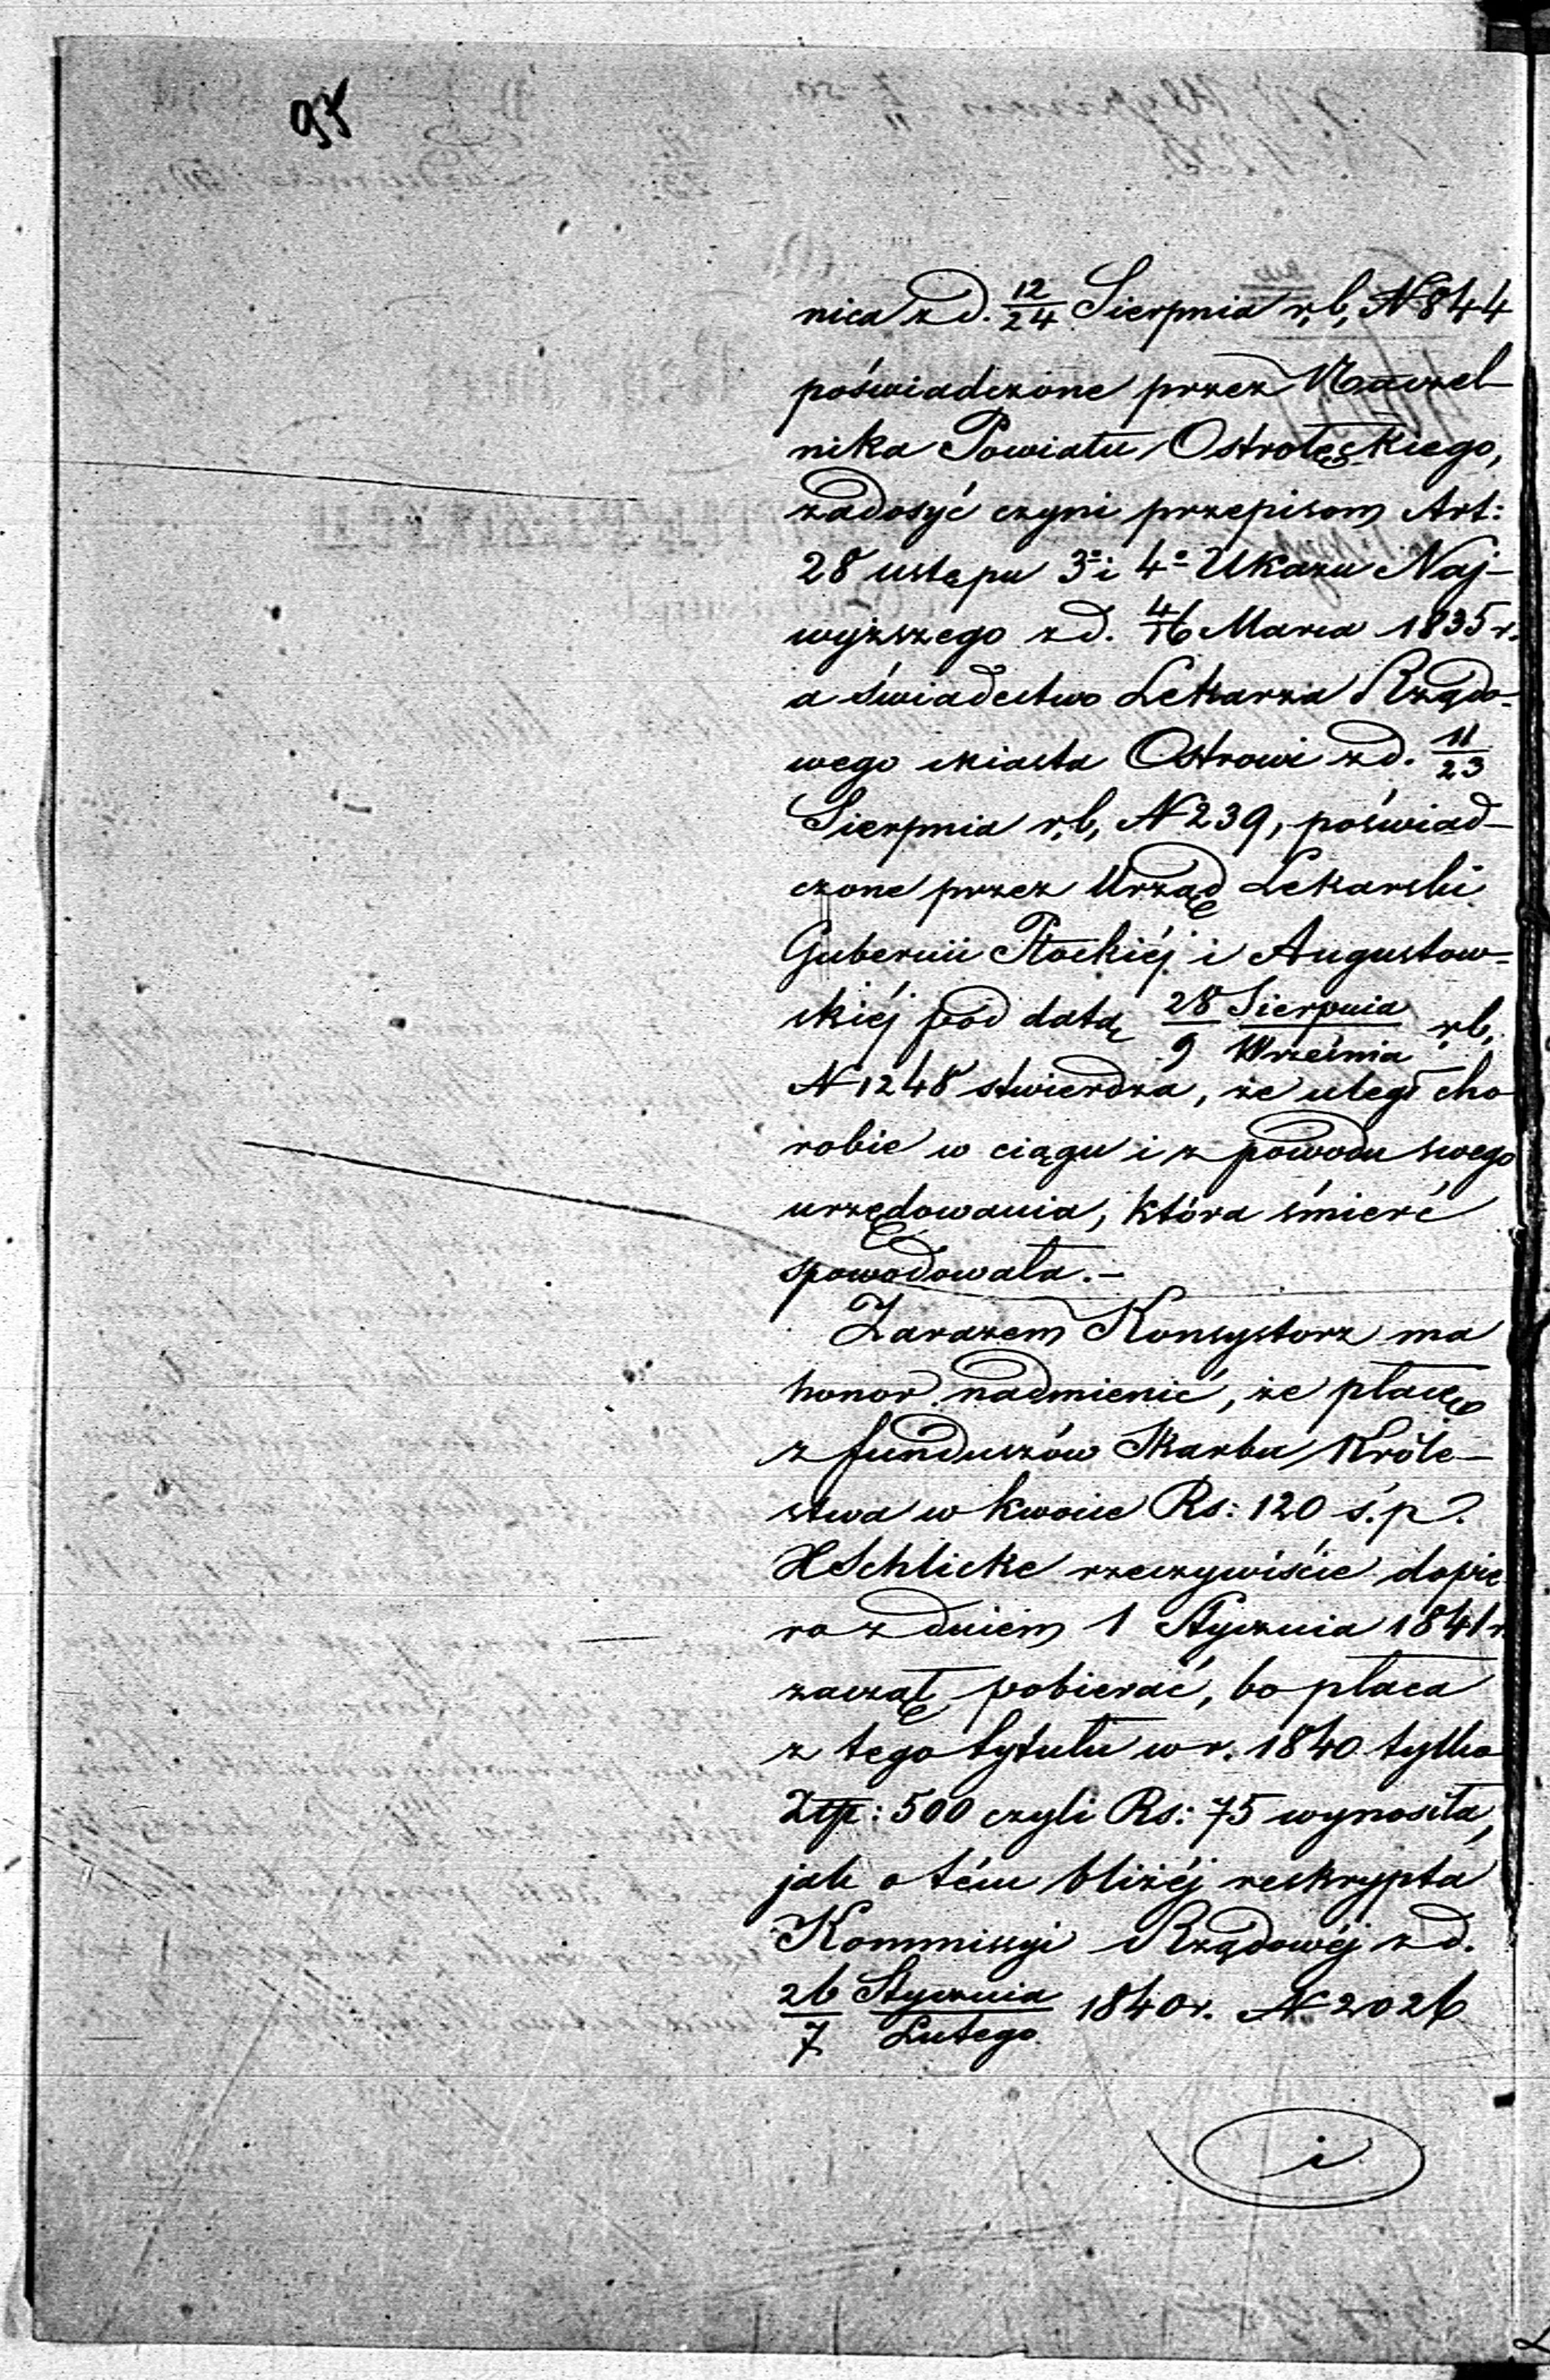 95
nica z d. 12/24 Sierpnia r, b, N 844
poświadczone przez Naczel-
nika Powiatu Ostrołęckiego,
zadosyć czyni przepisom Art:
28 ustępu 3º i 4º Ukazu Naj-
wyższego z d. 4/16 Marca 1835 r.
a świadectwo Lekarza Rządo-
wego miasta Ostrowi z d. 11/23
Sierpnia r, b, N 239, poświad-
czone przez Urząd Lekarski
Gubernii Płockiéj i Augustow=
skiéj pod datą 28 Sierpnia/9 Września r, b,
N 1248 stwierdza, że uległ cho
robie w ciągu i z powodu swego
urzędowania, która śmierć
spowodowała.-
Zarazem Konsystorz ma
honor nadmienić, że płacę
z funduszów Skarbu Króle-
stwa w kwocie Rs: 120 ś. p.
X Schlicke rzeczywiście dopie
ro z dniem 1 Stycznia 1841 r
zaczął pobierać, bo płaca
z tego tytułu w r. 1840 tylko
Złp: 500 czyli Rs: 75 wynosiła,
jak o tém bliżéj reskrypta
Kommissyi Rządowéj z d.
26 Stycznia/7 Lutego 1840 r. N 2026
i